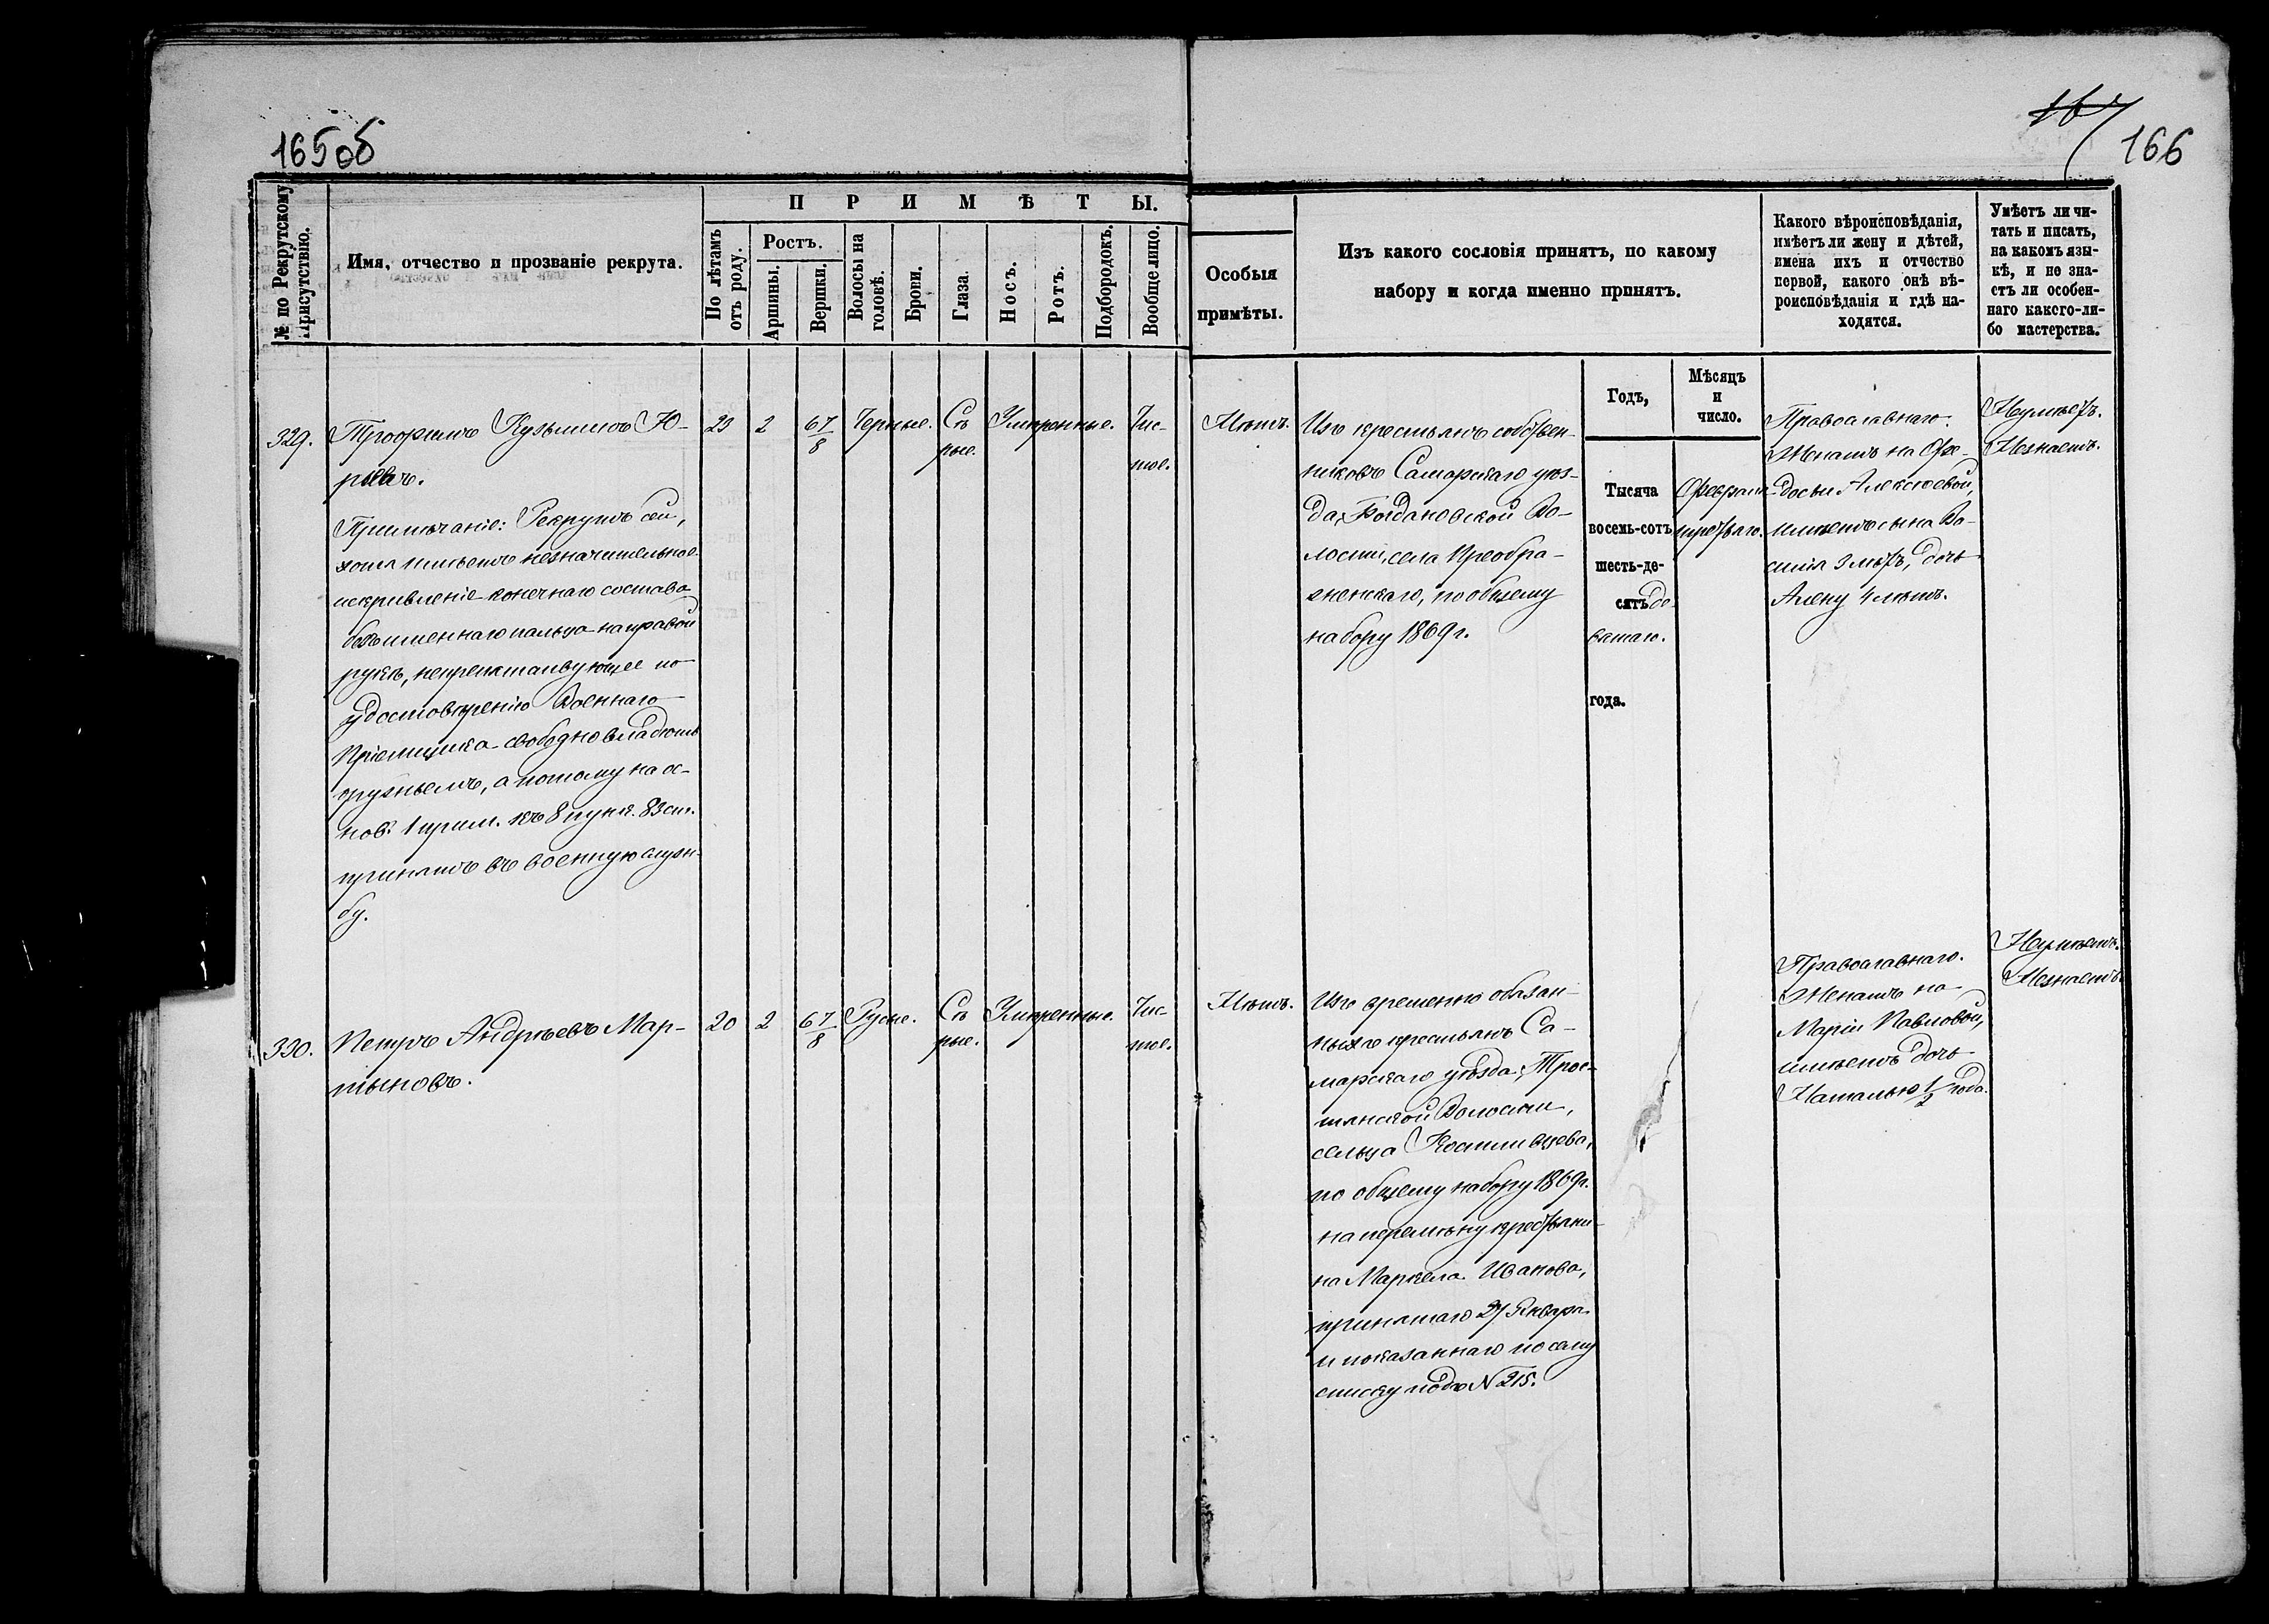 165об
167
166
№ по Рекрутскому
Присутствію.
Имя, отчество и прозваніе рекрута.
ПРИМѢТЫ.
По лѣтамъ
отъ роду.
Ростъ.
Аршины.
Вершки.
Волосы на
головѣ.
Брови.
Глаза.
Носъ.
Ротъ.
Подбородокъ.
Вообще лицо.
Особыя
примѣты.
Изъ какого сословія принятъ, по какому
набору и когда именно принятъ.
Какого вѣроисповѣданія,
имѣетъ ли жену и дѣтей,
имена ихъ и отчество
первой, какого онѣ вѣ-
роисповѣданія и гдѣ на-
ходятся.
Умѣетъ ли чи-
тать и писать,
на какомъ язы-
кѣ, и не зна-
етъ ли особен-
наго какого-ли-
бо мастерства.
329.
Трофимъ Кузьминъ Ю-
рьевъ.
Примѣчаніе: Рекрутъ сей,
хотя имѣетъ незначительное
искривленіе конечнаго состава
безъименнаго пальца на правой
рукѣ, непрепятствующее по
удостовѣренію Военнаго
Пріемщика свободно владѣть
оружіемъ, а потому на ос-
нов. 1 прим. къ 8 пунк. 83 ст.
принятъ въ военную служ-
бу.
23
2
6 7/8
Черные.
Сѣ
рые.
Умѣренные.
Чис-
тое.
Нѣтъ.
Изъ крестьянъ собствен-
никовъ Самарскаго уѣз-
да, Богдановской Во-
лости, села Преобра-
женскаго, по общему
набору 1869 г.
Годъ,
Тысяча
восемь-сотъ
шесть-де-
сятъ де-
вятаго.
года.
Мѣсяцъ
и
число.
Февраля
третьяго.
Православнаго.
Женатъ на Ѳе-
досьи Алексѣевой,
имѣетъ сына Ва-
силія 3 лѣтъ, дочь
Алену 4 лѣтъ.
Неумѣетъ.
Незнаетъ.
330.
Петръ Андреевъ Мар-
тыновъ.
20
2
6 7/8
Русые.
Сѣ
рые.
Умѣренные.
Чис-
тое.
Нѣтъ.
Изъ временно обязан-
ныхъ крестьянъ Са-
марскаго уѣзда, Трос-
тянской Волости,
сельца
по общему набору 1869 г.
на перемѣну крестьяни-
на Маркела Иванова,
принятаго 27 Января
и показаннаго по сему
списку подъ N 215.
Православнаго.
Женатъ на
Маріи Павловой,
имѣетъ дочь
Наталью 1/2 года.
Неумѣетъ.
Незнаетъ.